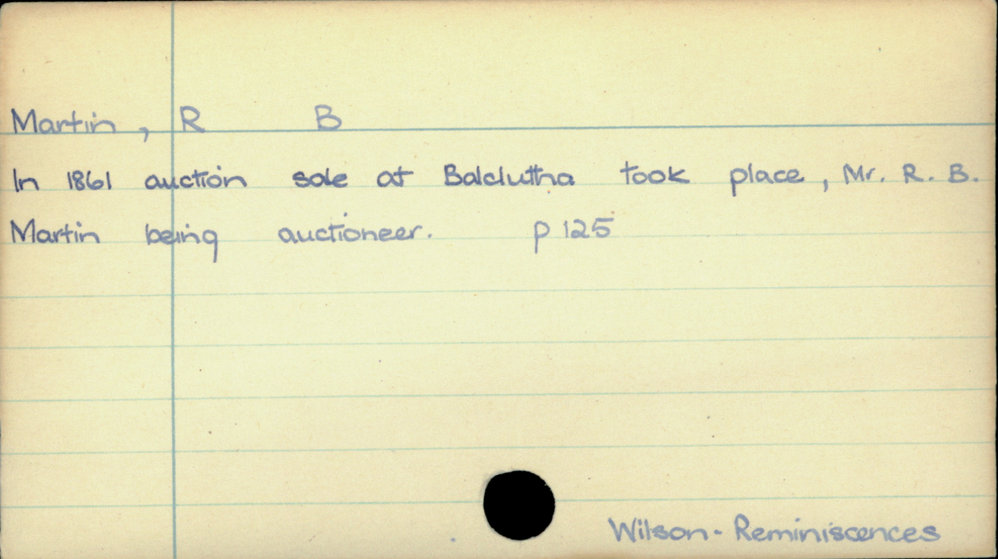 Martin, R B
In 1861 auction sale at Balclutha took place, Mr. R. B.
Martin being auctioneer. p 125
Wilson - Reminiscences